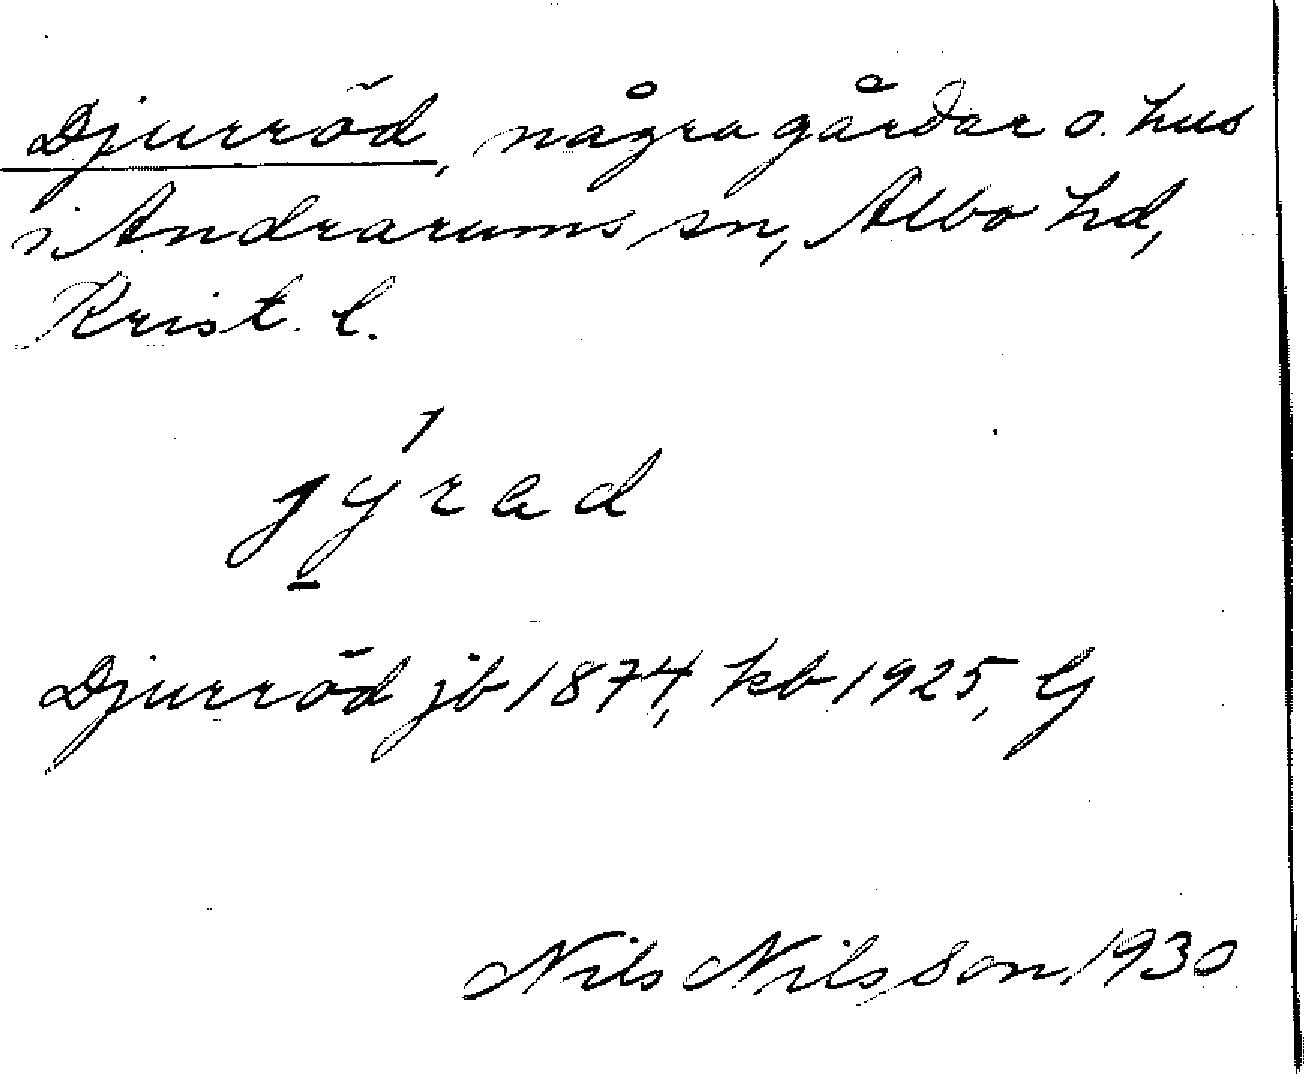 Djurröd, några gårdar o. hus
i Andrarums sn, Albo hd,
Krist. l.
jýrad
Djurröd jb 1874, kb 1925, G
Nils Nilsson 1930